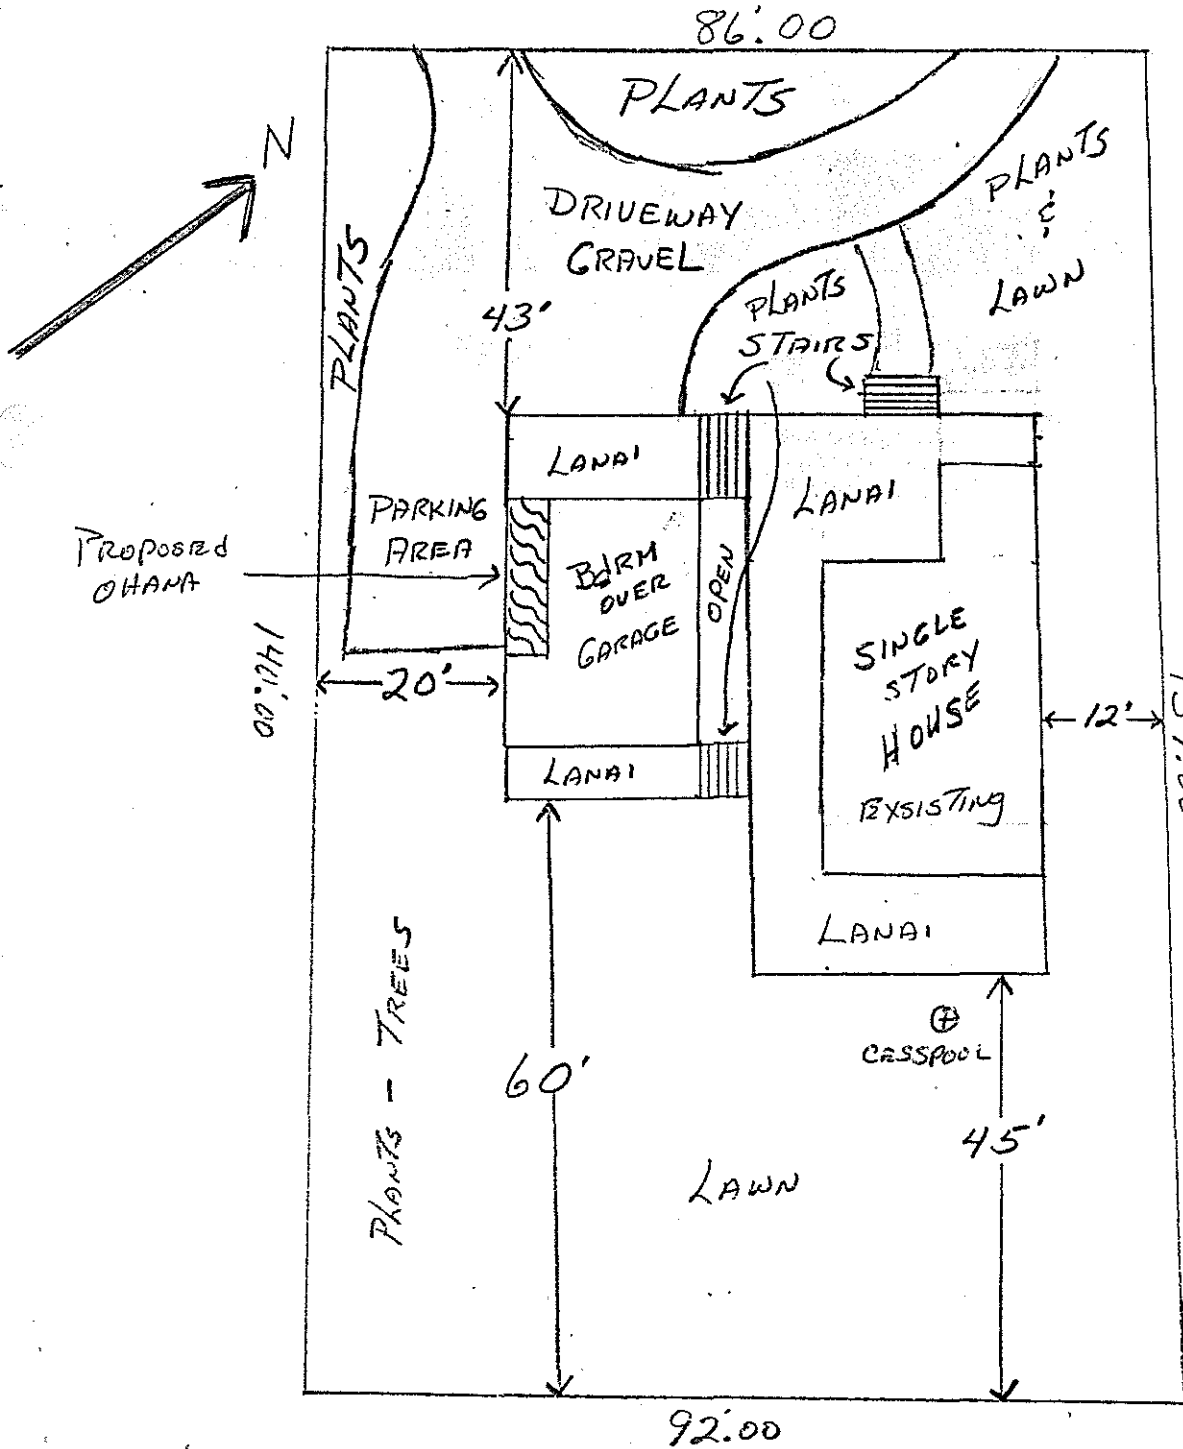 86'.00
N
PLANTS
PLANTS
&
LAWN
DRIVEWAY
GRAVEL
PLANTS
43'
PLANTS
STAIRS
LANAI
LANAI
PARKING
AREA
PROPOSED
OHANA
BdRM
OVER
GARAGE
OPEN
SINGLE
STORY
HOUSE
EXSISTING
20'
12'
LANAI
LANAI
CESSPOOL
PLANTS - TREES
60'
45'
LAWN
92'.00